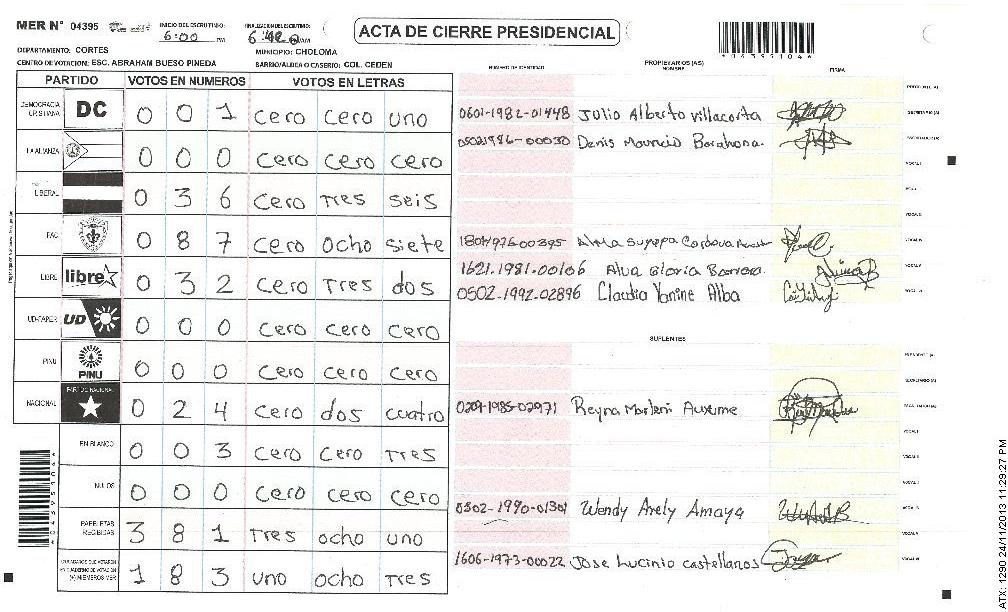 MER N° 04395
INICIO DEL ESCRUTINIO: 6:00 PM
FINALIZACION DEL ESCRUTINIO:
ACTA DE CIERRE PRESIDENCIAL
DEPARTAMENTO: CORTES
MUNICIPIO: CHOLOMA
CENTRO DE VOTACION: ESC. ABRAHAM BUESO PINEDA
BARRIO/ALDEA O CASERIO: COL. CEDEN
PARTIDO VOTOS EN NUMEROS VOTOS EN LETRAS
DEMOCRACIA CRISTIANA DC 0 0 1 cero cero uno
LA ALIANZA 0 0 0 cero cero cero
LIBERAL 0 3 6 cero tres seis
PAC 0 8 7 cero ocho siete
LIBRE libre 0 3 2 cero tres dos
UD-FAPER UD 0 0 0 cero cero cero
PINU PINU 0 0 0 cero cero cero
NACIONAL PARTIDO NACIONAL 0 2 4 cero dos cuatro
EN BLANCO 0 0 3 cero cero tres
NULOS 0 0 0 cero cero cero
PAPELETAS RECIBIDAS 3 8 1 tres ocho uno
CIUDADANOS QUE VOTARON
(+) MIEMBROS MER 1 8 3 uno ocho tres
NUMERO DE IDENTIDAD PROPIETARIOS (AS) NOMBRE FIRMA
0601-1982-01448 Julio Alberto Villacorta
05021986-00030 Denis Mauricio Barahona
Cordova
1621.1981.00106 Alva Gloria Barrera
0502-1992-02896 Claudia Yanine Alba
SUPLENTES
0209-1985-02971 Reyna Marleni
0502-1990-01301 Wendy Arely Amaya
1606-1973-00022 Jose Lucinio castellanos
04395104
ATX: 1290 24/11/2013 11:29:27 PM